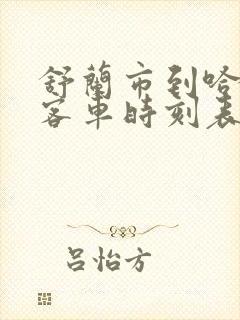 舒蘭市到哈
客車時刻表
吕怡方